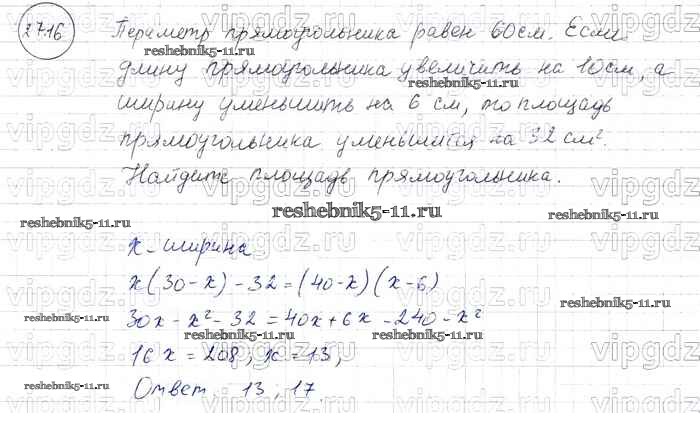 27.16
Периметр прямоугольника равен 60 см. Если
длину прямоугольника увеличить на 10 см, а
ширину уменьшить на 6 см, то площадь
прямоугольника уменьшится на 32 см².
Найдите площадь прямоугольника.
reshebnik5-11.ru
x - ширина
x(30-x)-32=(40-x)(x-6)
30x-x²-32=40x+6x-240-x²
16x=208; x=13;
Ответ: 13; 17.